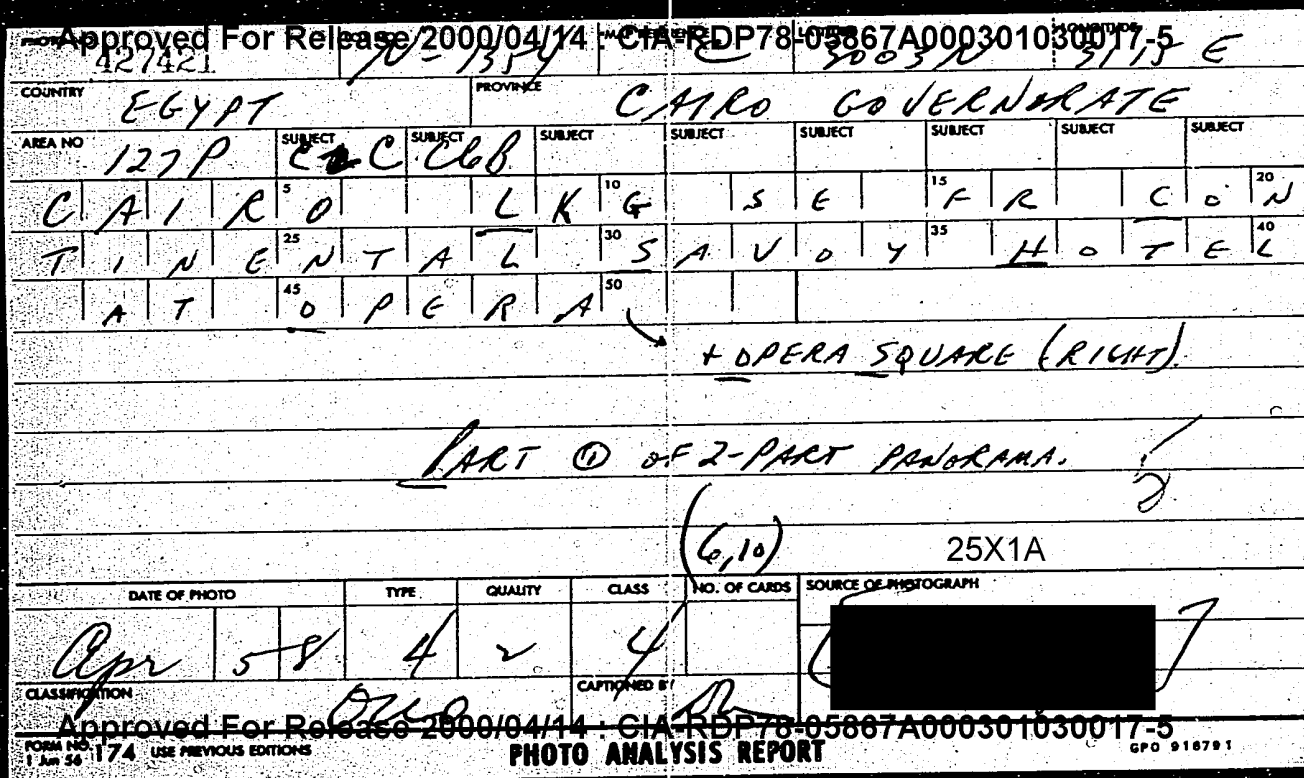 Approved For Release 2000/04/14 : CIA-RDP78-05867A000301030017-5
427421 N-1354 C 3003N 3115 E
COUNTRY EGYPT PROVINCE CAIRO GOVERNORATE
AREA NO 127P SUBJECT C SUBJECT C6B SUBJECT SUBJECT SUBJECT SUBJECT SUBJECT SUBJECT
CAIRO LKG SE FR CON
TINENTAL SAVOY HOTEL
AT OPERA
+ OPERA SQUARE (RIGHT).
PART ① OF 2-PART PANORAMA.
(6,10) 25X1A
DATE OF PHOTO TYPE QUALITY CLASS NO. OF CARDS SOURCE OF PHOTOGRAPH
Apr 58 4 2 4
CLASSIFICATION CAPTIONED BY
Approved For Release 2000/04/14 : CIA-RDP78-05867A000301030017-5
FORM NO. 174 USE PREVIOUS EDITIONS PHOTO ANALYSIS REPORT GPO 916791
1 Jun 56